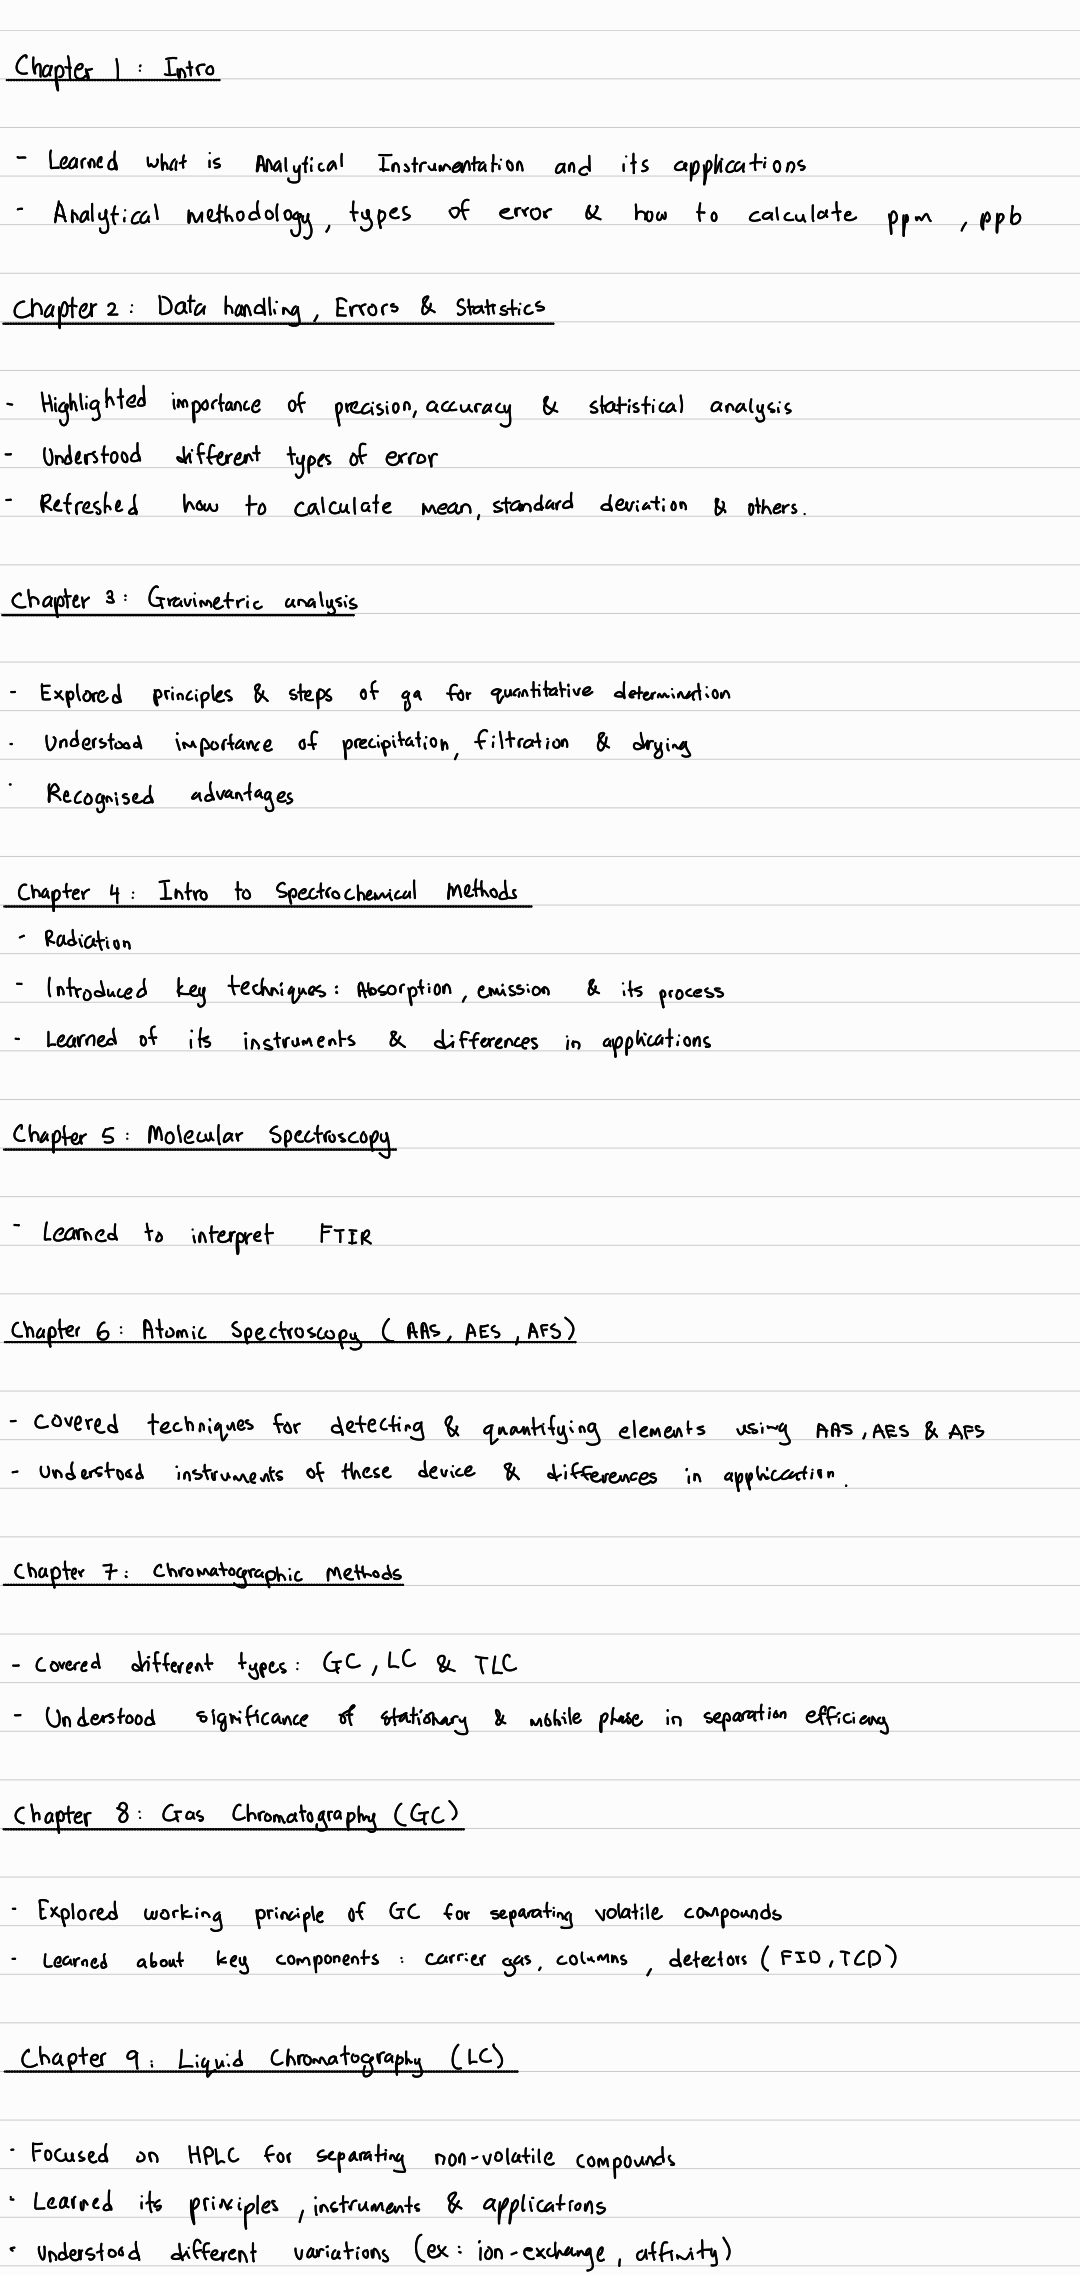 Chapter 1 : Intro
- Learned what is Analytical Instrumentation and its applications
- Analytical methodology, types of error & how to calculate ppm, ppb
Chapter 2 : Data handling, Errors & Statistics
- Highlighted importance of precision, accuracy & statistical analysis
- Understood different types of error
- Refreshed how to calculate mean, standard deviation & others.
Chapter 3 : Gravimetric analysis
- Explored principles & steps of ga for quantitative determination
- Understood importance of precipitation, filtration & drying
- Recognised advantages
Chapter 4 : Intro to Spectrochemical Methods
- Radiation
- Introduced key techniques : Absorption, emission & its process
- Learned of its instruments & differences in applications
Chapter 5 : Molecular Spectroscopy
- Learned to interpret FTIR
Chapter 6 : Atomic Spectroscopy (AAS, AES, AFS)
- Covered techniques for detecting & quantifying elements using AAS, AES & AFS
- Understood instruments of these device & differences in application.
Chapter 7 : Chromatographic Methods
- Covered different types : GC, LC & TLC
- Understood significance of stationary & mobile phase in separation efficiency
Chapter 8 : Gas Chromatography (GC)
- Explored working principle of GC for separating volatile compounds
- Learned about key components : carrier gas, columns, detectors (FID, TCD)
Chapter 9 : Liquid Chromatography (LC)
- Focused on HPLC for separating non-volatile compounds
- Learned its principles, instruments & applications
- Understood different variations (ex : ion-exchange, affinity)